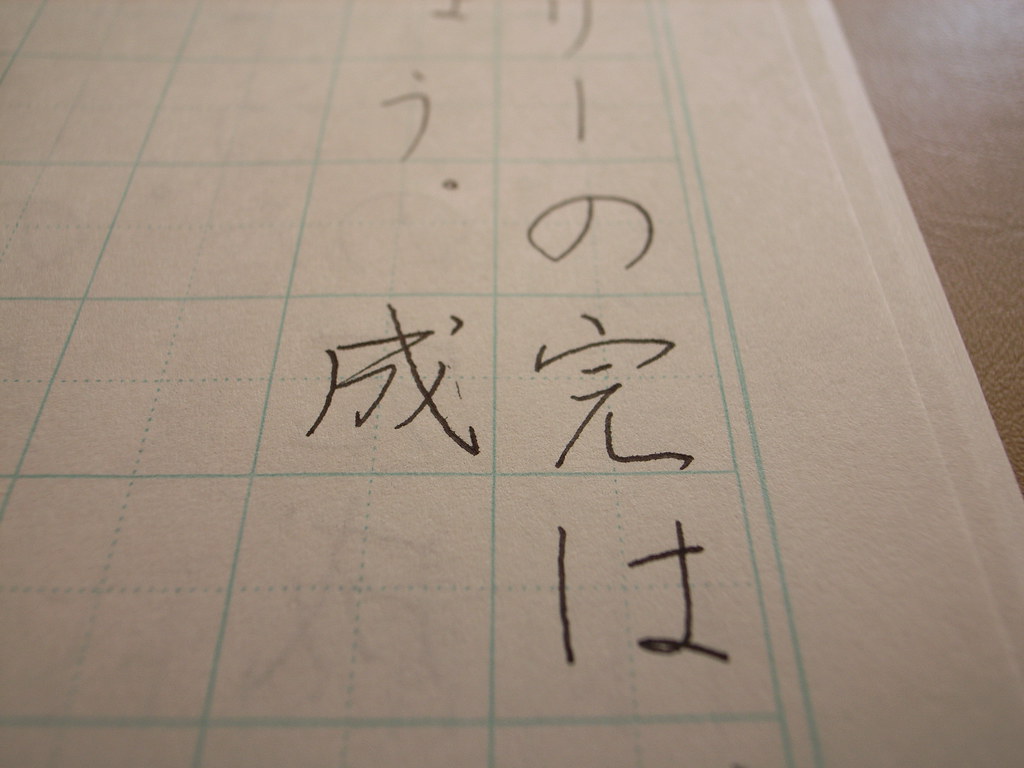 リーの完は
ょう.成